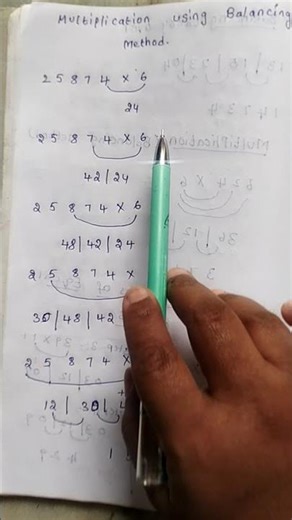 Multiplication using Balancing
Method.
2 5 8 7 4 × 6
24
2 5 8 7 4 × 6
42|24
2 5 8 7 4 × 6
48|42|24
2 5 8 7 4 ×
30|48|42
2 5 8 7 4 ×
12| 30|
1